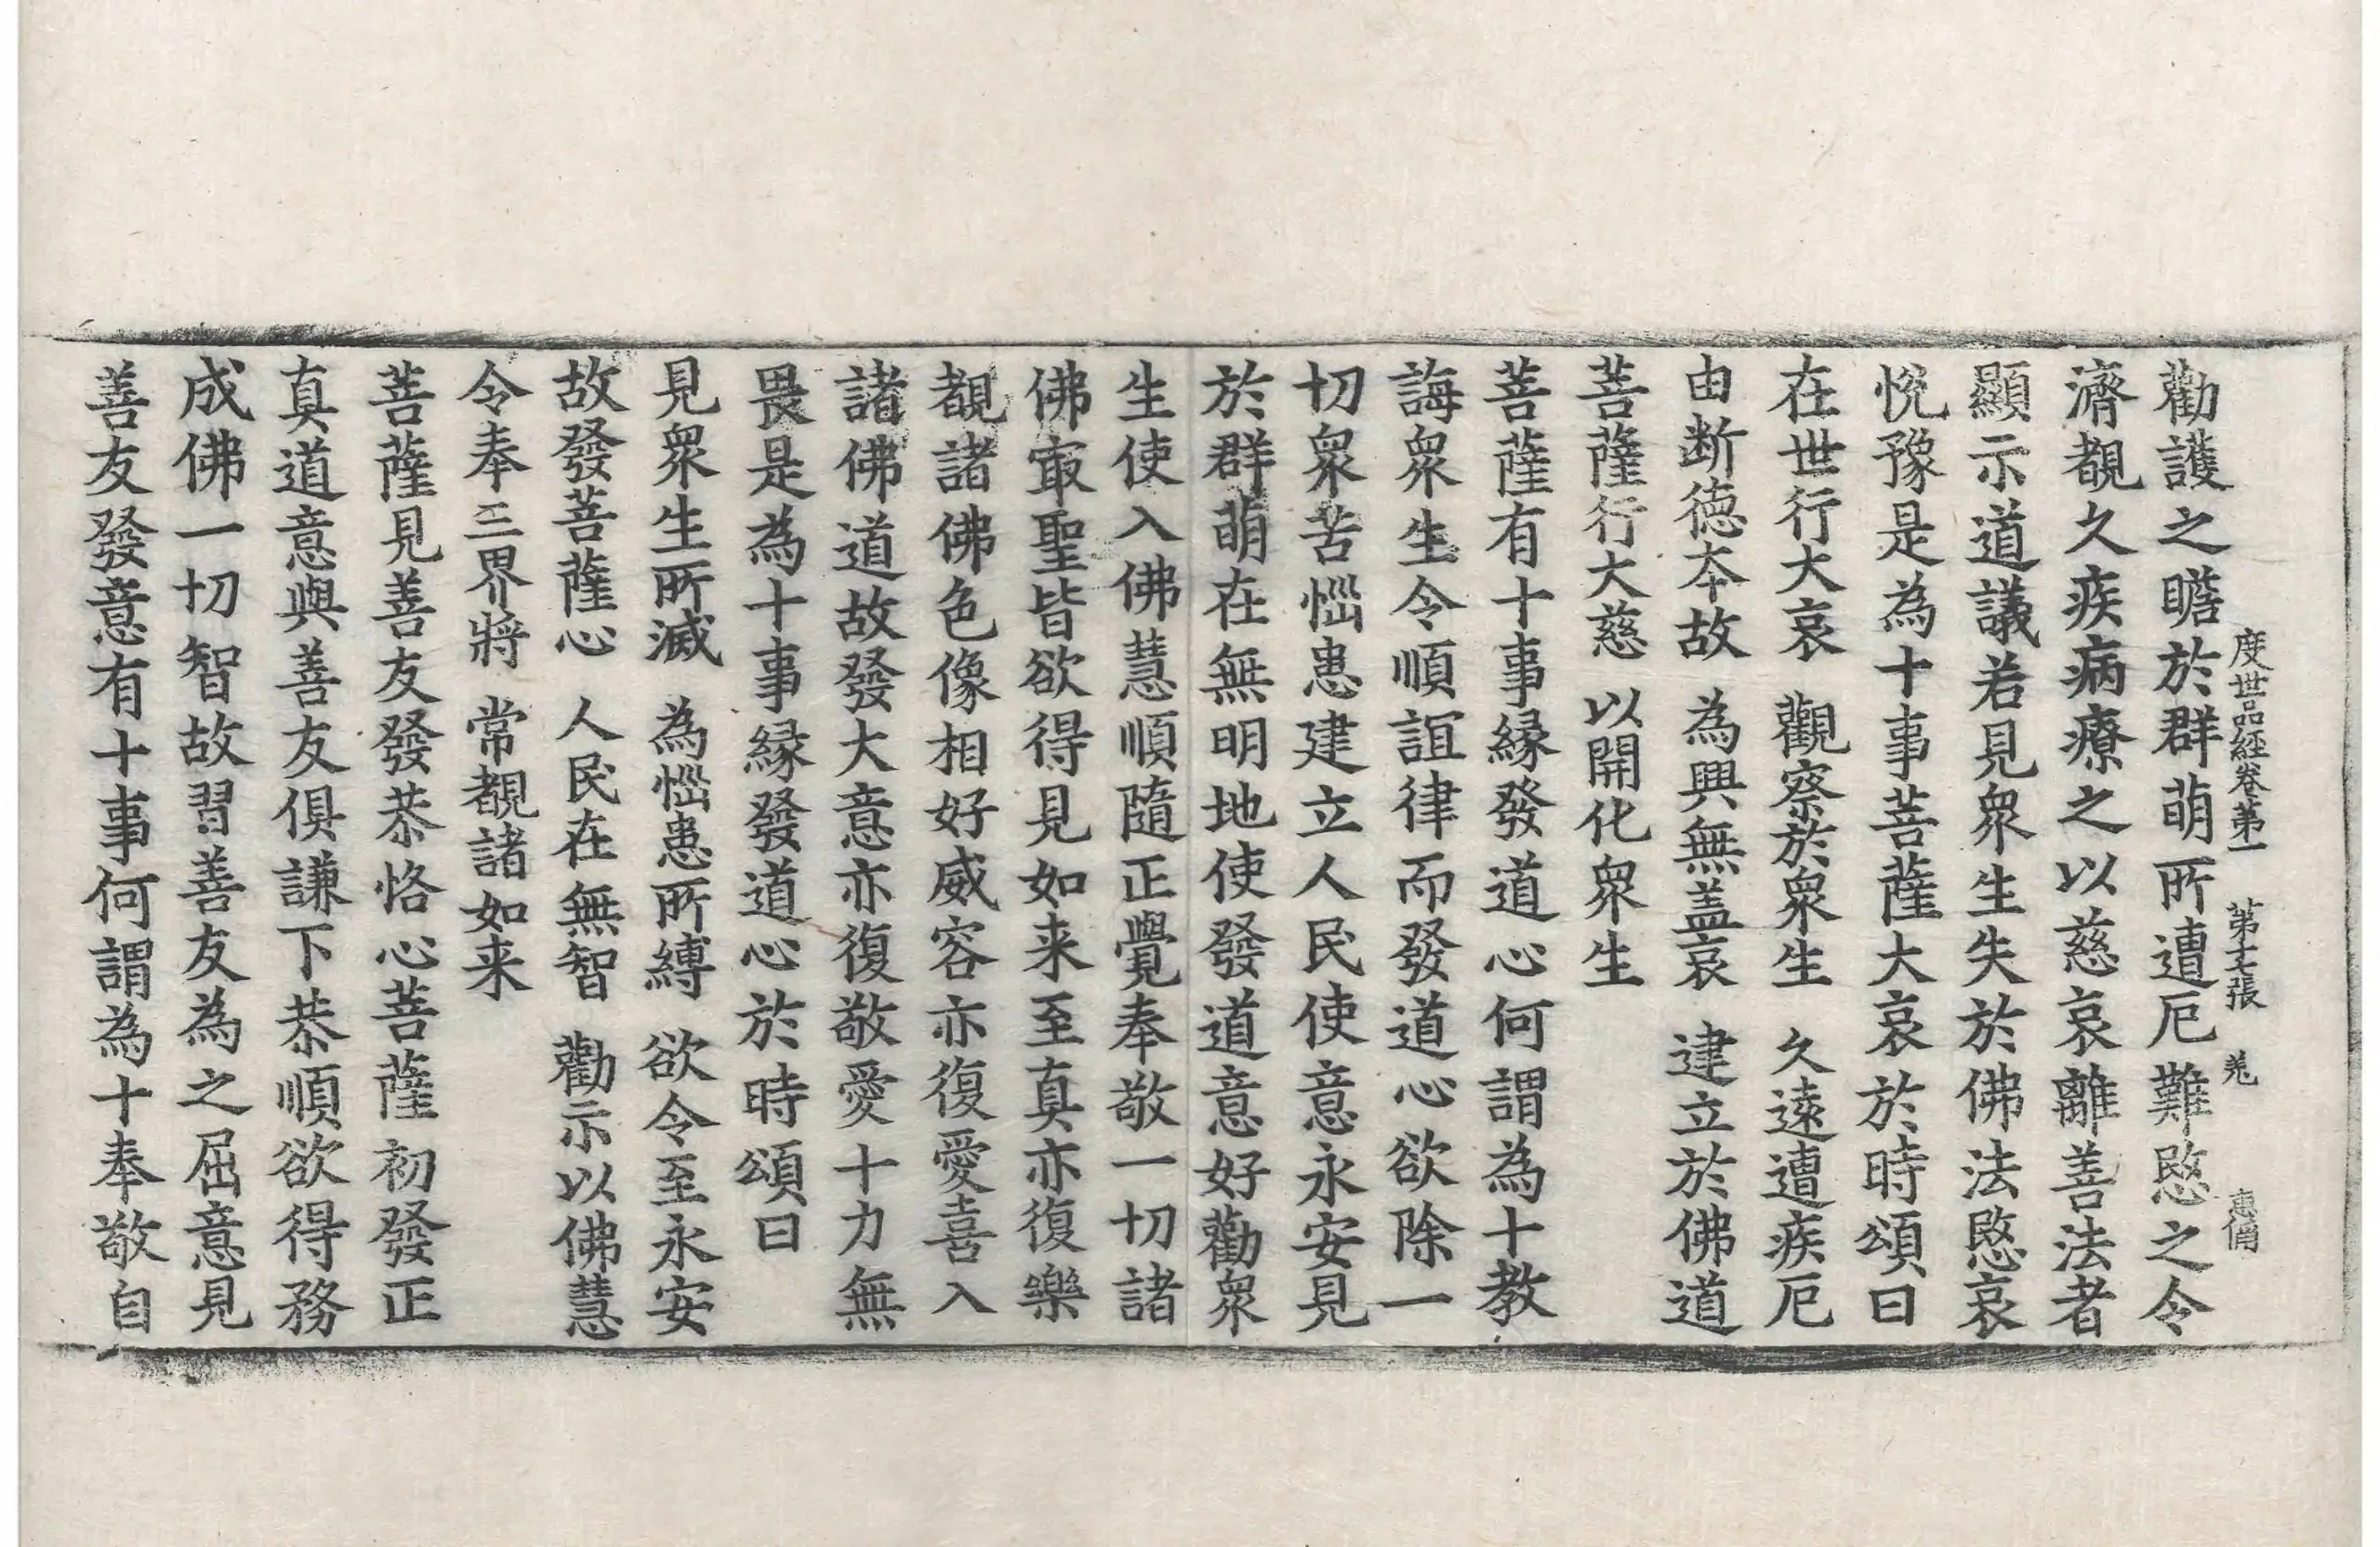 度世品経卷苐一 苐七張 羗 惠僃
勸護之瞻於群萌所遭厄難愍之令
濟覩久疾病療之以慈哀離善法者
顯示道議若見衆生失於佛法愍哀
悅豫是為十事菩薩大哀於時頌曰
在世行大哀 觀察於衆生 久遠遭疾厄
由断德本故 為興無盖哀 建立於佛道
菩薩行大慈 以開化衆生
菩薩有十事縁發道心何謂為十教
誨衆生令順誼律而發道心欲除一
切衆苦惱患建立人民使意永安見
於群萌在無明地使發道意好勸衆
生使入佛慧順隨正覺奉敬一切諸
佛㝡聖皆欲得見如来至真亦復樂
覩諸佛色像相好威容亦復愛喜入
諸佛道故發大意亦復敬愛十力無
畏是為十事縁發道心於時頌曰
見衆生所滅 為惱患所縛 欲令至永安
故發菩薩心 人民在無智 勸示以佛慧
令奉三界將 常覩諸如来
菩薩見善友發恭恪心菩薩初發正
真道意與善友俱謙下恭順欲得務
成佛一切智故習善友為之屈意見
善友發意有十事何謂為十奉敬自